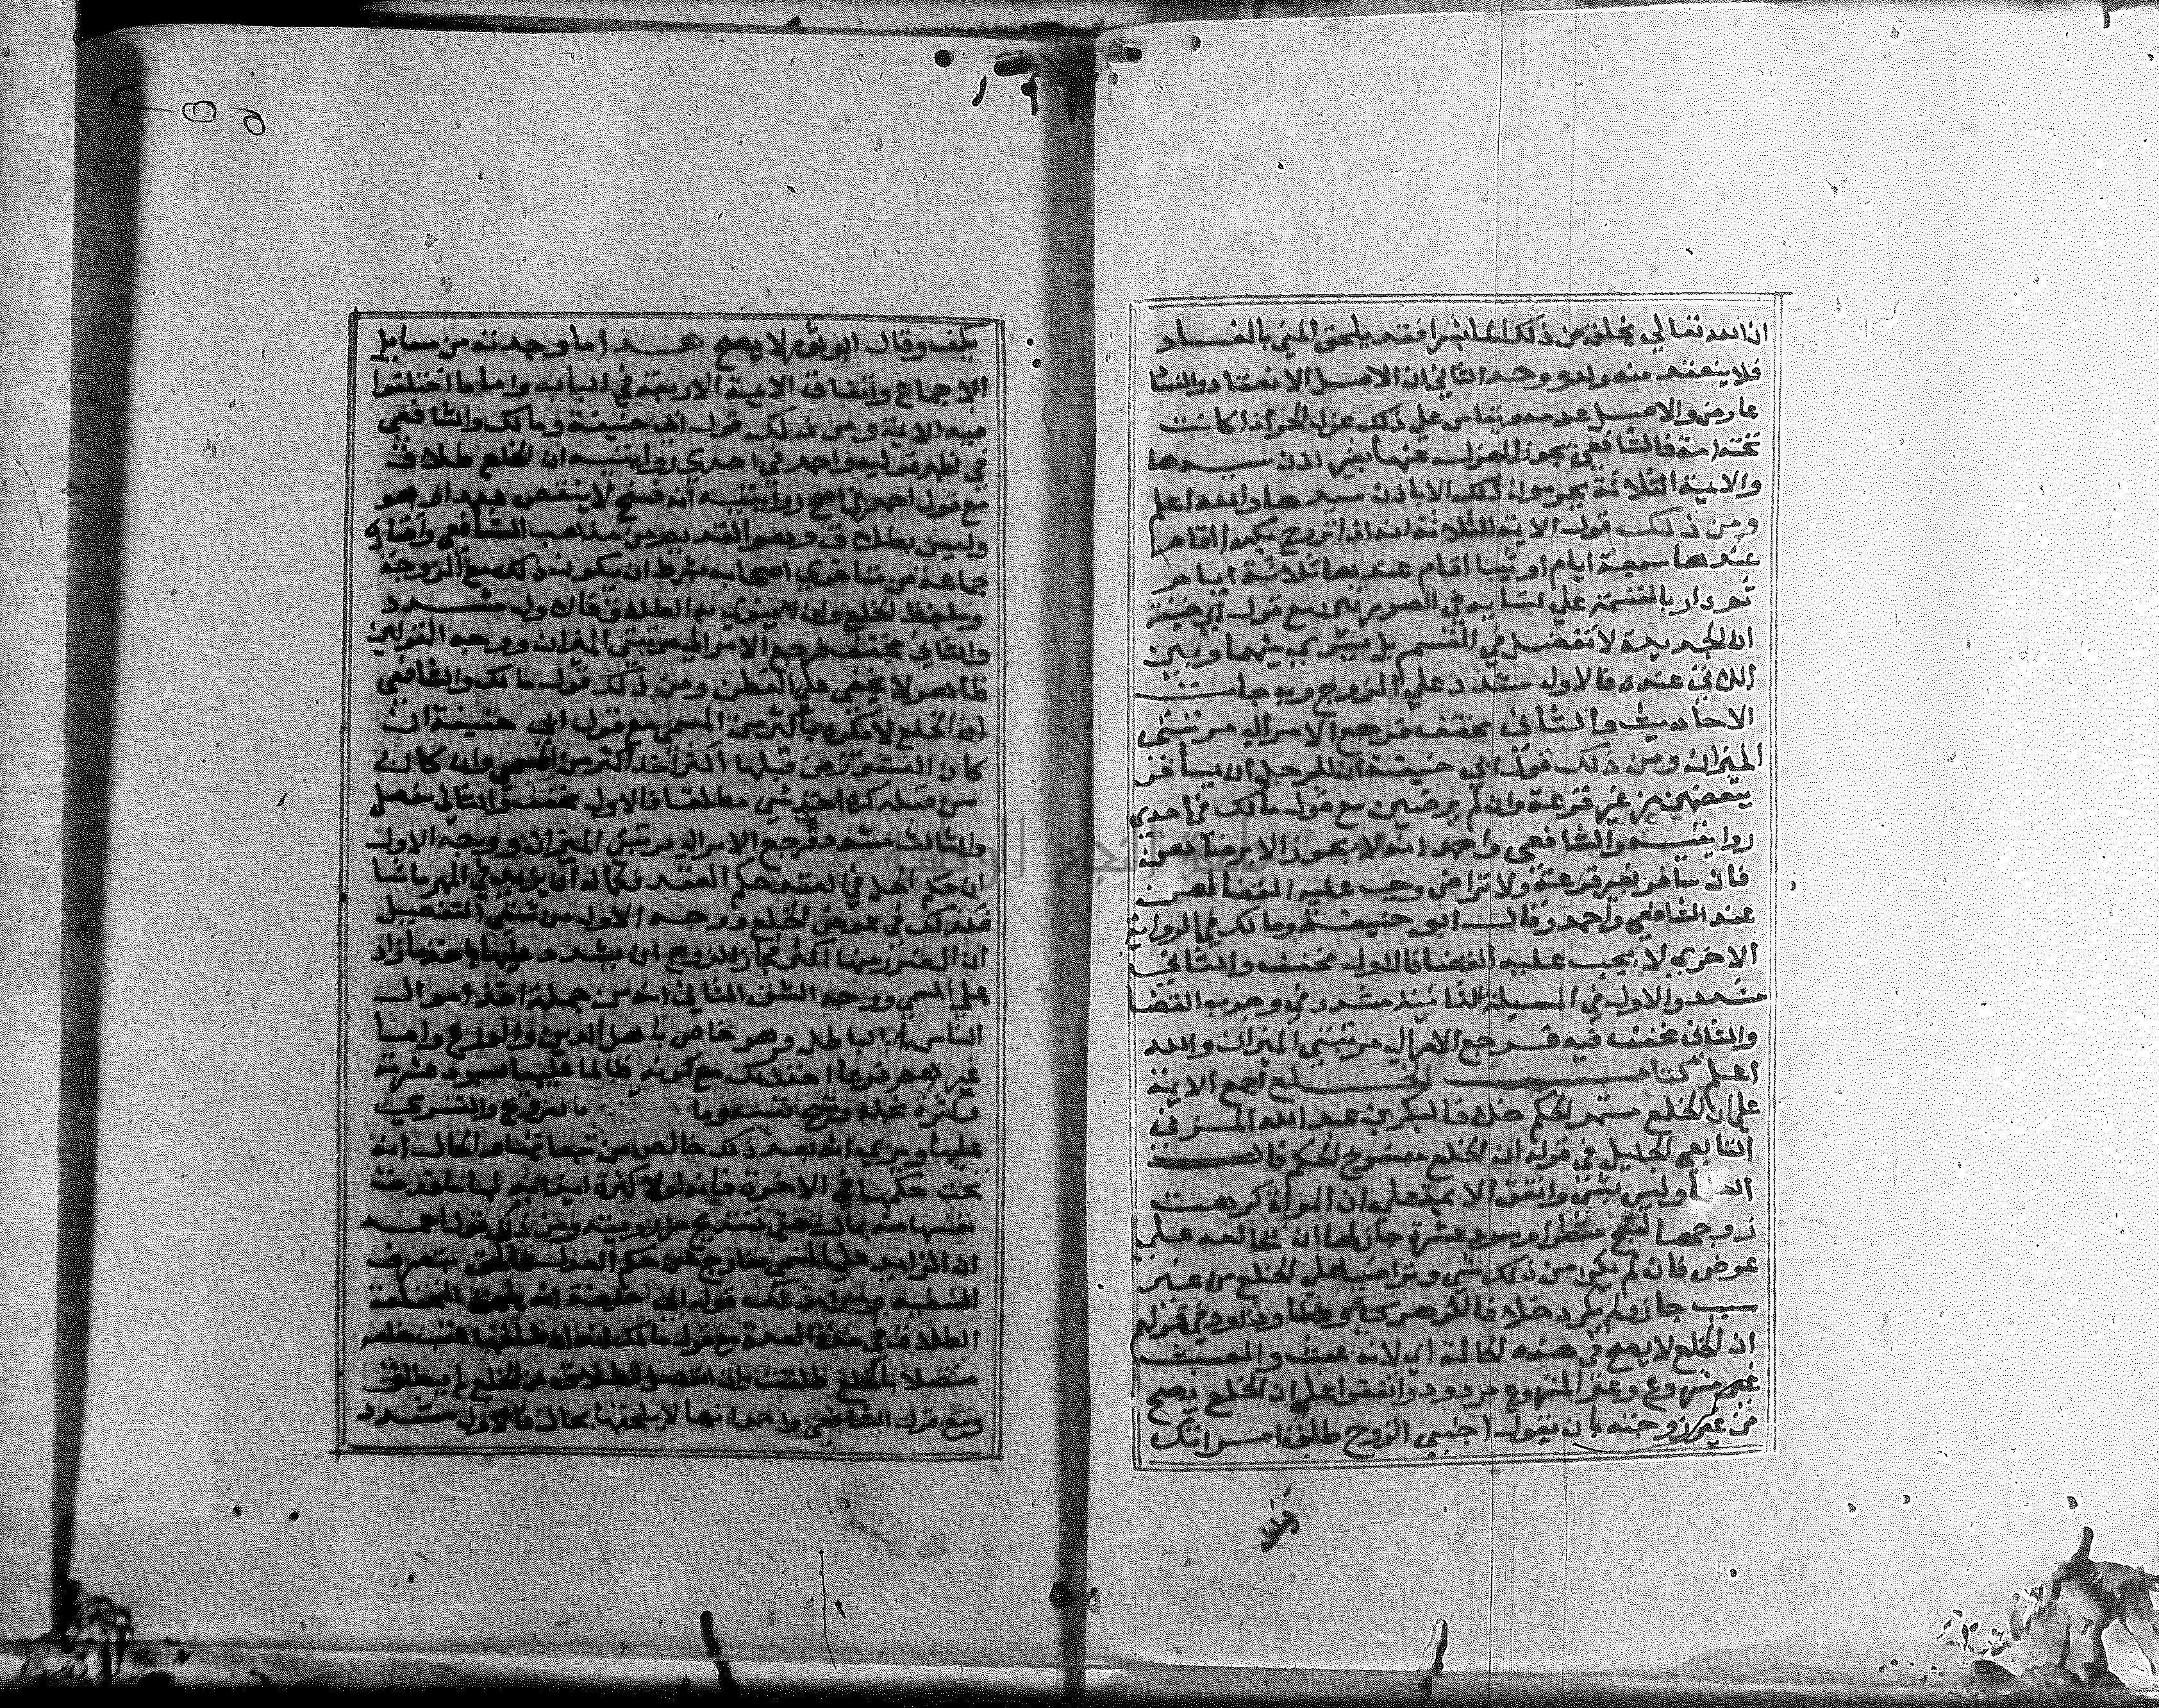 ان الله تعالي يخلق من ذلك الما بشرا فقد يلحق المني بالفساد
فلا ينعقد منه ولد ووجه الثاني ان الاصل الانعقاد والفساد
عارض والاصل عدمه ويقاس علي ذلك عزل الحر اذا كانت
تحته امة فالشافعي يجوز العزل عنها بغير اذن سيدها
والايمة الثلاثة يحرمون ذلك الا باذن سيدها والله اعلم
ومن ذلك قول الايمة الثلاثة انه اذا تزوج بكرا اقام
عندها سبعة ايام او ثيبا اقام عندها ثلاثة ايام
ثم دار بالقسمة علي نسايه في الصورتين مع قول ابي حنيفة
ان الجديدة لا تفضل في القسم بل يسوي بينهما وبين
اللاتي عنده فالاول مشدد علي الزوج وبه جات
الاحاديث والثاني مخفف فرجع الامر الي مرتبتي
الميزان ومن ذلك قول ابي حنيفة ان للرجل ان يسافر
ببعضهن من غير قرعة وان لم يرضين مع قول مالك في احدي
روايتيه والشافعي واحمد انه لا يجوز الا برضاهن
فان سافر بغير قرعة ولا تراض وجب عليه القضا لهن
عند الشافعي واحمد وقال ابو حنيفة ومالك في الرواية
الاخري لا يجب عليه القضا فالاول مخفف والثاني
مشدد والاول في المسيلة الثانية مشدد في وجوب القضا
والثاني مخفف فيه فرجع الامر الي مرتبتي الميزان والله
اعلم كتاب الخلع اجمع الايمة
علي ان الخلع مستمر الحكم خلافا لبكر بن عبد الله المزني
التابعي الجليل في قوله ان الخلع منسوخ الحكم قالت
العلما وليس بشي واتفق الايمة علي ان المراة اذا كرهت
زوجها لقبح منظر او سوء عشرة جاز لها ان تخالعه علي
عوض فان لم يكن من ذلك شي وتراضيا علي الخلع من غير
سبب جاز ولم يكره خلافا للزهري وعطا وداود في قولهم
ان الخلع لا يصح في هذه الحالة اي لانه عبث والعبث
غير مشروع وغير المشروع مردود واتفقوا علي ان الخلع يصح
من غير زوجته بان يقول اجنبي للزوج طلق امراتك
بالف وقال ابو ثور لا يصح هذا ما وجدته من مسايل
الاجماع واتفاق الايمة الاربعة في الباب واما ما اختلفوا
فيه الاية ومن ذلك قول ابي حنيفة ومالك والشافعي
في اظهر قوليه واحمد في احدي روايتيه ان الخلع طلاق
مع قول احمد في اصح روايتيه انه فسخ لا ينقص عددا
وليس بطلاق وهو القديم من مذهب الشافعي واختاره
جماعة من متاخري اصحابه بشرط ان يكون ذلك مع الزوجة
وبلفظ الخلع وان لا ينوي به الطلاق فالاول مشدد
والثاني مخفف فرجع الامر الي مرتبتي الميزان ووجه القولين
ظاهر لا يخفي علي الفطن ومن ذلك قول مالك والشافعي
ان الخلع لا يكره باكثر من المسمي مع قول ابي حنيفة ان
كان النشوز من قبلها اكثر اخذ اكثر من المسمي وان كان
من قبله كره اخذ شي مطلقا فالاول مخفف والثاني مفصل
والثالث مشدد فرجع الامر الي مرتبتي الميزان ووجه الاول
ان حكم الحل في العقد حكم العقد فكما له ان يزيد في المهر ما شا
فكذلك في عوض الخلع ووجه الاول من شقي التفصيل
ان الضرر منها اكثر فجاز للزوج ان يشدد عليها باخذ ما زاد
علي المسمي ووجه الشق الثاني انه من جملة اخذ اموال
الناس بالباطل وهو خاص باهل الدين والورع واما
غيرهم فربما اخذ ذلك مع كونه ظالما عليها بسوء عشرته
وكثرة بخله وقبح بالتزوج والتسري
عليها ويري انه بعد ذلك خالص من تبعاتها والحال انه
تحت حكمها في الاخرة فانه لولا كثرة ايذايه لها ما فدت
نفسها منه بمال حتي تستريح من رويته ومن ذلك قول احمد
ان الزايد علي المسمي خارج عن حكم العدل
ومن ذلك قول ابي حنيفة انه يلحق المختلعة
الطلاق في مدة العدة مع قول مالك انه ان طلقها عقب خلعه
متصلا بالخلع طلقت وان انفصل الطلاق عن الخلع لم يطلق
ومع قول الشافعي واحمد انها لا يلحقها بحال فالاول مشدد